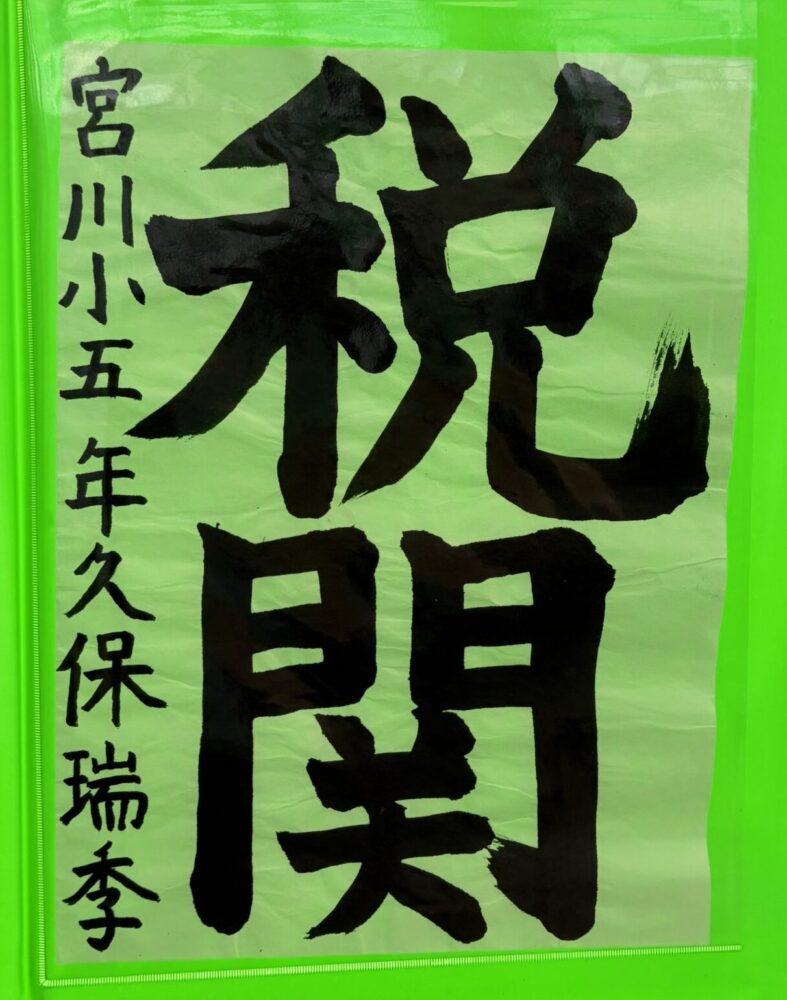 税関
宮川小五年久保瑞季